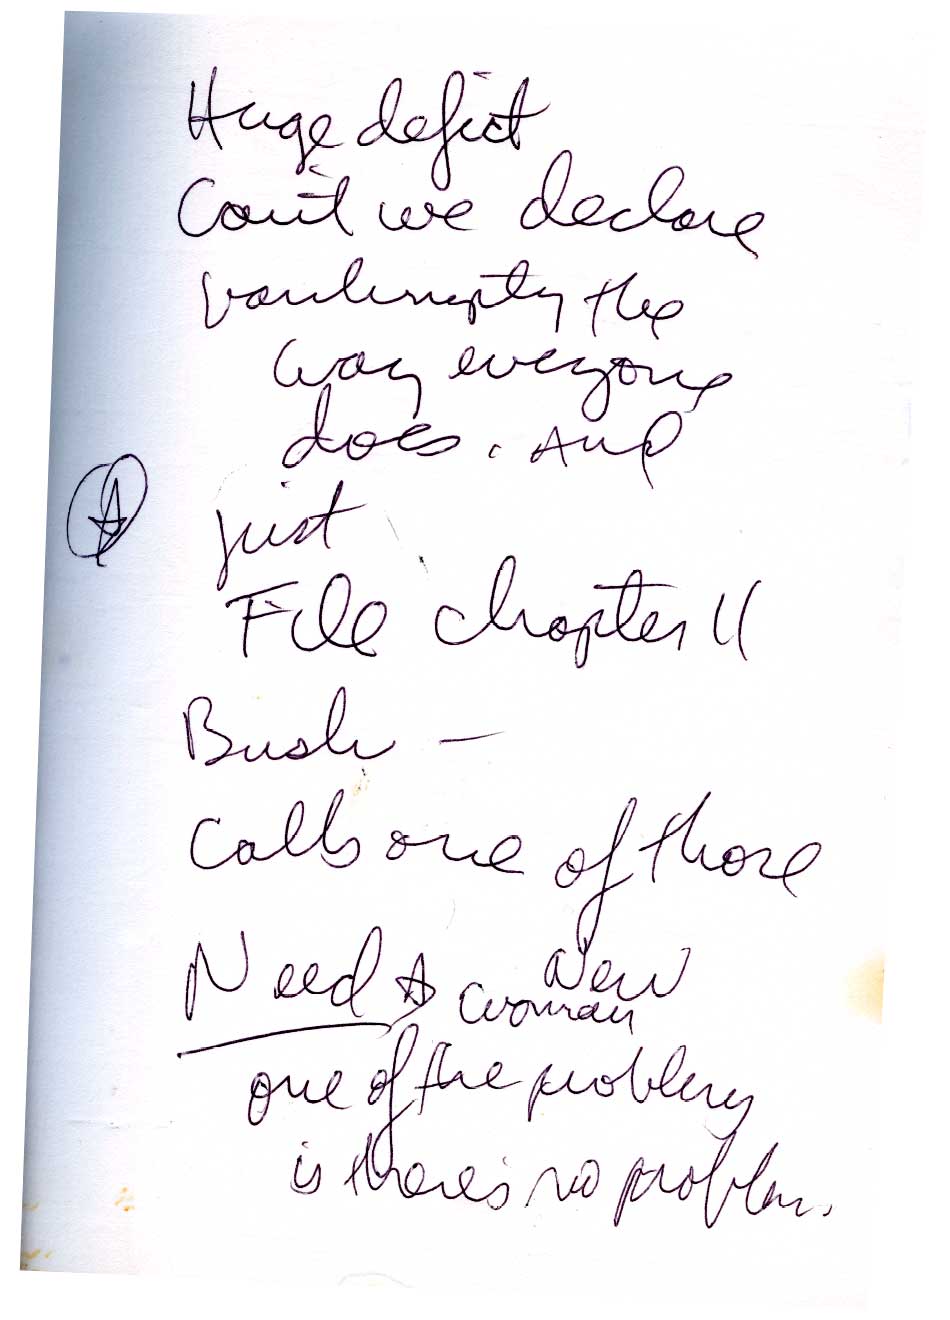 Huge deficit
Can't we declare
bankruptcy the
way everyone
does. And
just
File chapter 11
Bush —
Calls one of those
Need A New
woman
one of the problems
is there's no problem.